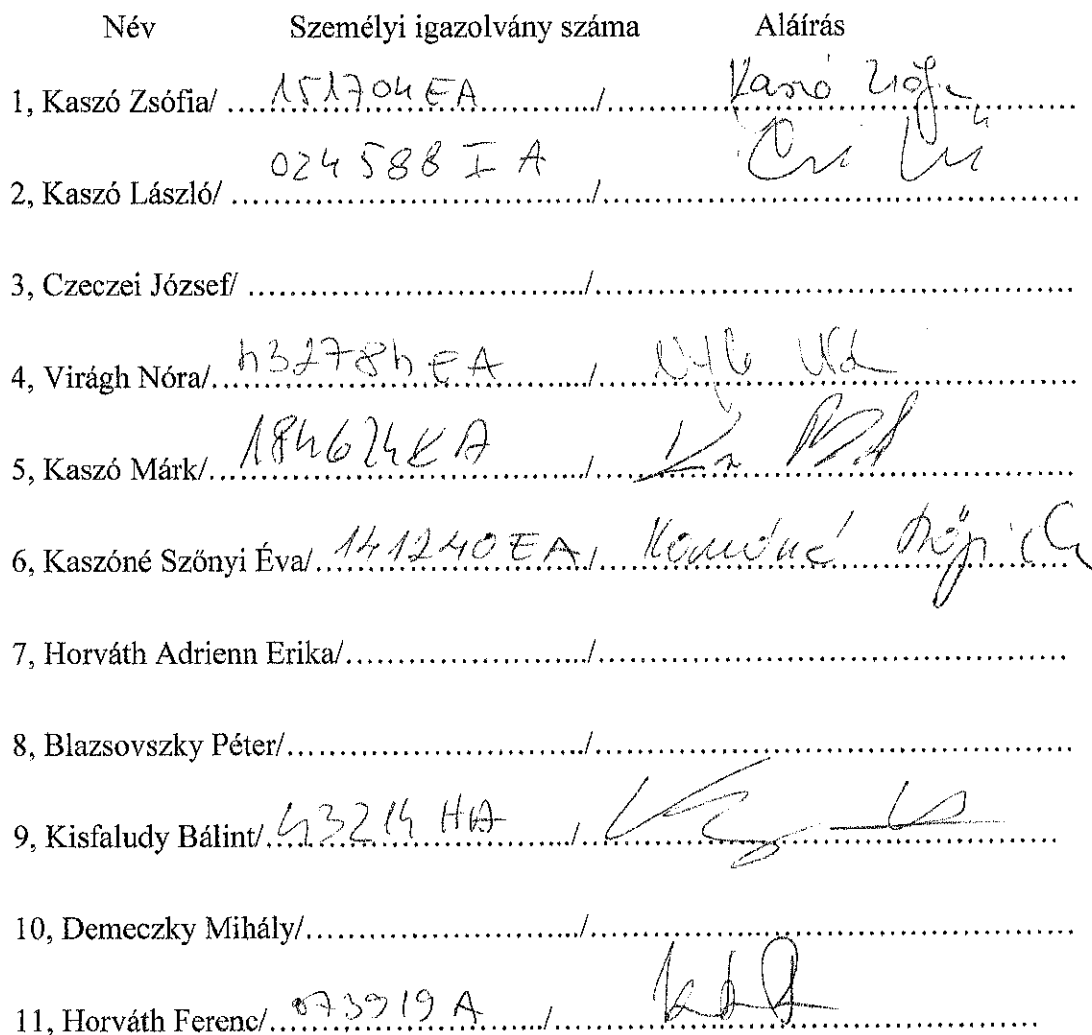 Név Személyi igazolvány száma Aláírás
1, Kaszó Zsófia/ ....151704EA............./ Kaszó Zsófia
2, Kaszó László/ 024588 IA ......................................../................................................
3, Czeczei József/ ......................................../................................................
4, Virágh Nóra/ 432784EA ......../................................................
5, Kaszó Márk/ 184624KA ......../................................................
6, Kaszóné Szőnyi Éva/ 141240EA / Kaszóné
7, Horváth Adrienn Erika/............................/................................................
8, Blazsovszky Péter/..................................../................................................
9, Kisfaludy Bálint/ 43214 HA /................................................
10, Demeczky Mihály/................................../................................................
11, Horváth Ferenc/ 073919A ......../................................................